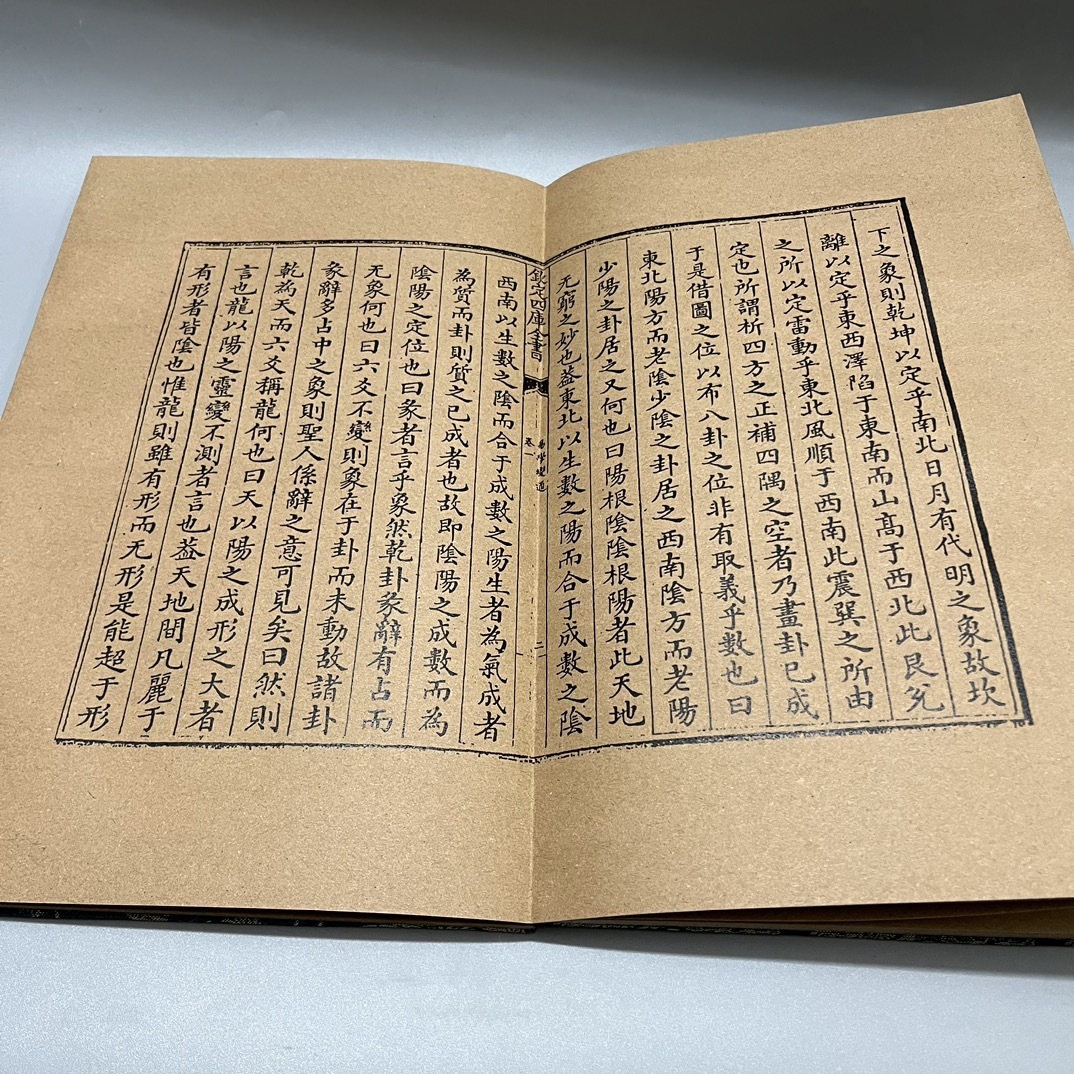 下之象則乾坤以定乎南北日月有代明之象故坎
離以定乎東西澤陷于東南而山髙于西北此艮兊
之所以定雷動乎東北風順于西南此震巽之所由
定也所謂析四方之正補四隅之空者乃畫卦已成
于是借圖之位以布八卦之位非有取義乎數也曰
東北陽方而老陰少陰之卦居之西南陰方而老陽
少陽之卦居之又何也曰陽根陰陰根陽者此天地
无窮之妙也葢東北以生數之陽而合于成數之陰
欽定四庫全書
卷一
易學變通
二
西南以生數之陰而合于成數之陽生者為氣成者
為質而卦則質之已成者也故即陰陽之成數而為
陰陽之定位也曰彖者言乎象然乾卦彖辭有占而
无象何也曰六爻不變則象在于卦而未動故諸卦
彖辭多占中之象則聖人係辭之意可見矣曰然則
乾為天而六爻稱龍何也曰天以陽之成形之大者
言也龍以陽之靈變不測者言也葢天地間凡麗于
有形者皆陰也惟龍則雖有形而无形是能超于形